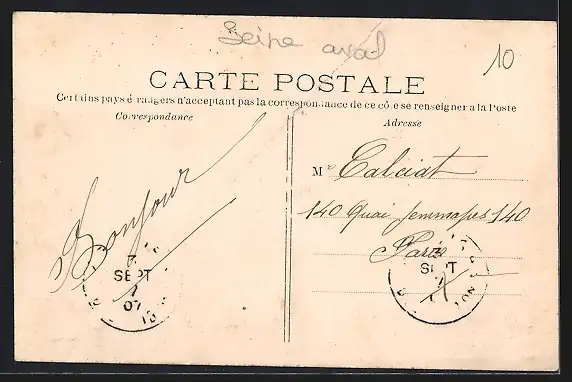 Seine aval
10
CARTE POSTALE
Certains pays étrangers n'acceptant pas la correspondance de ce côté se renseigner a la Poste
Correspondance
Adresse
Bonjour
Mr Calciat
140 Quai Jemmapes 140
Paris
SEPT
07
SEPT